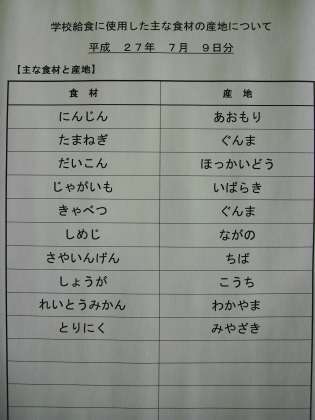 学校給食に使用した主な食材の産地について
平成　２７年　７月　９日分
【主な食材と産地】
食　材　産　地
にんじん　あおもり
たまねぎ　ぐんま
だいこん　ほっかいどう
じゃがいも　いばらき
きゃべつ　ぐんま
しめじ　ながの
さやいんげん　ちば
しょうが　こうち
れいとうみかん　わかやま
とりにく　みやざき